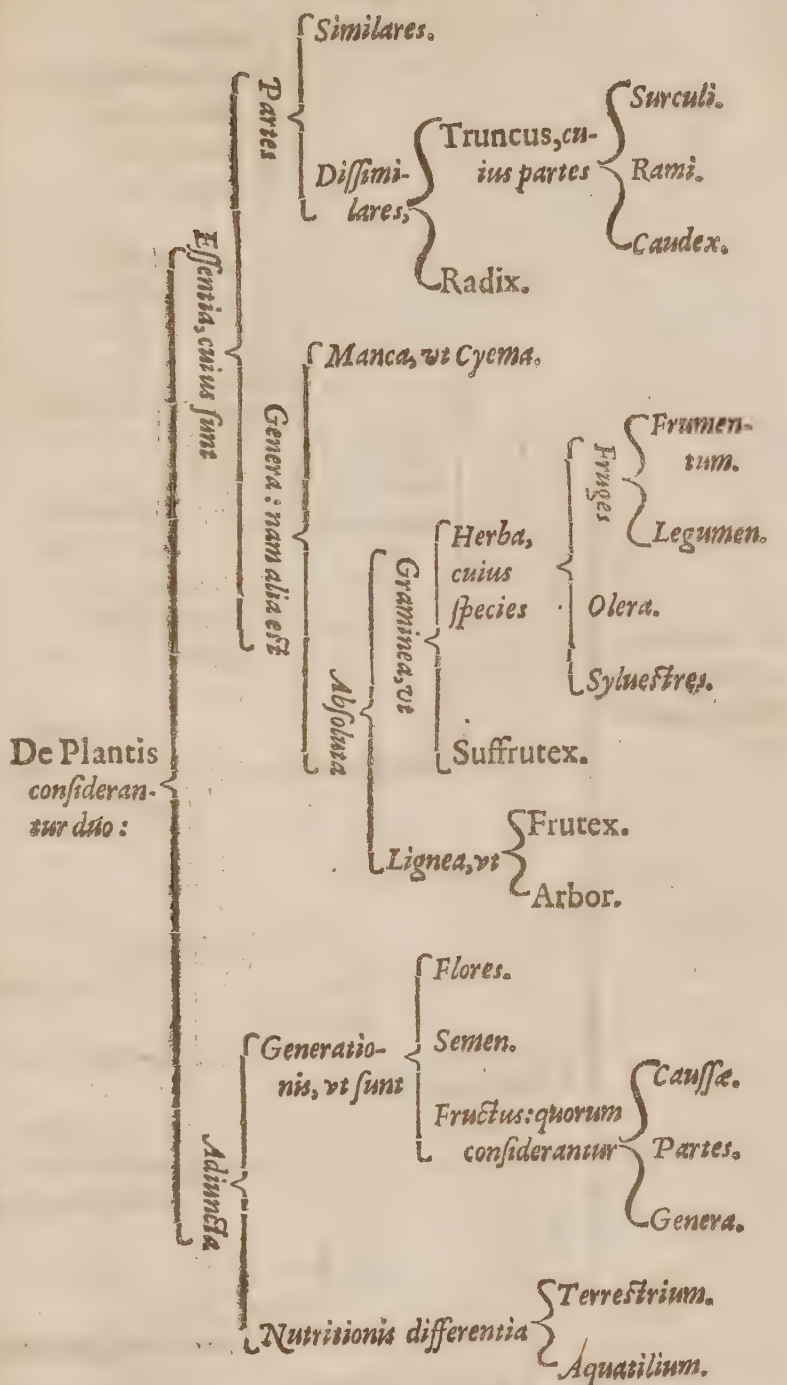 De Plantis
consideran-
tur duo:
Essentia, cuius sunt
Partes
Similares.
Dissimi-
lares,
Truncus, cu-
ius partes
Surculi.
Rami.
Caudex.
Radix.
Genera: nam alia est
Manca, vt Cyema.
Absoluta
Graminea, vt
Herba,
cuius
species
Fruges
Frumen-
tum.
Legumen.
Olera.
Syluestres.
Suffrutex.
Lignea, vt
Frutex.
Arbor.
Adiuncta
Generatio-
nis, vt sunt
Flores.
Semen.
Fructus: quorum
considerantur
Caussæ.
Partes.
Genera.
Nutritionis differentia
Terrestrium.
Aquatilium.